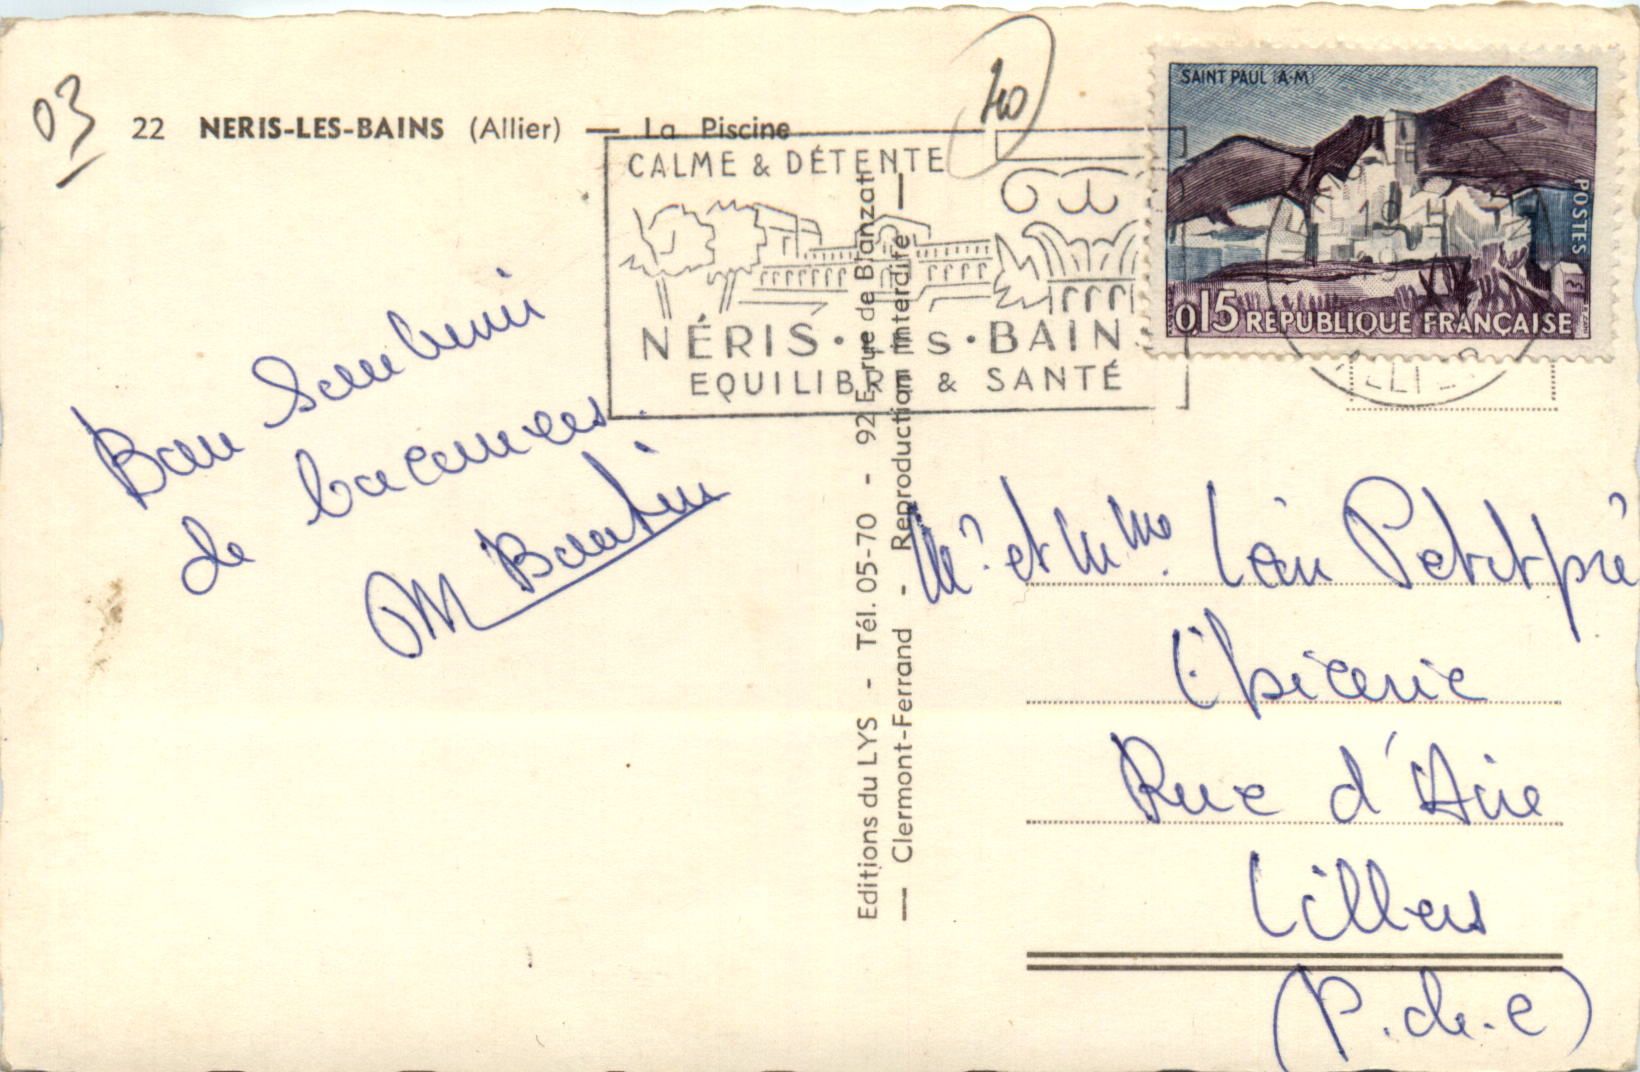 03
40
22 NERIS-LES-BAINS (Allier) — La Piscine
CALME & DÉTENTE
NÉRIS · LES · BAINS
EQUILIBRE & SANTÉ
SAINT PAUL (A-M)
POSTES
0,15 REPUBLIQUE FRANÇAISE
Bon Souvenir
de vacances.
M Boutin
Editions du LYS - Tél. 05-70 - 92 E, rue de Blanzat
— Clermont-Ferrand - Reproduction interdite —
Mr et Mme Léon Petitpré
Epicerie
Rue d'Aire
Lillers
(P.de.C)